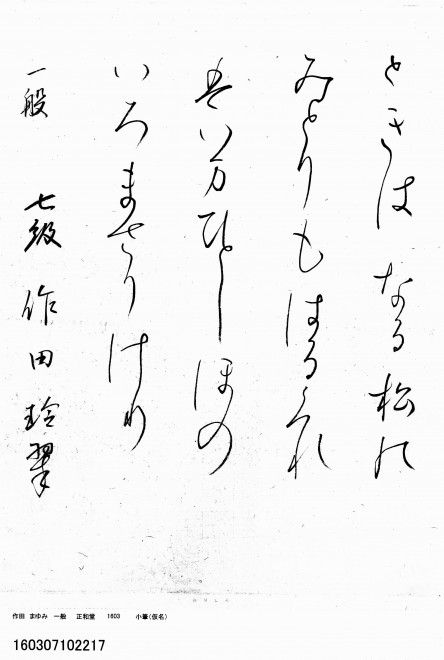 ときはなる松の
みどりもはるくれ
者いま万ひとしほの
いろまさりけり
一般 七級 作田玲翠
作田 まゆみ 一般 正和堂 1603 小筆(仮名)
160307102217